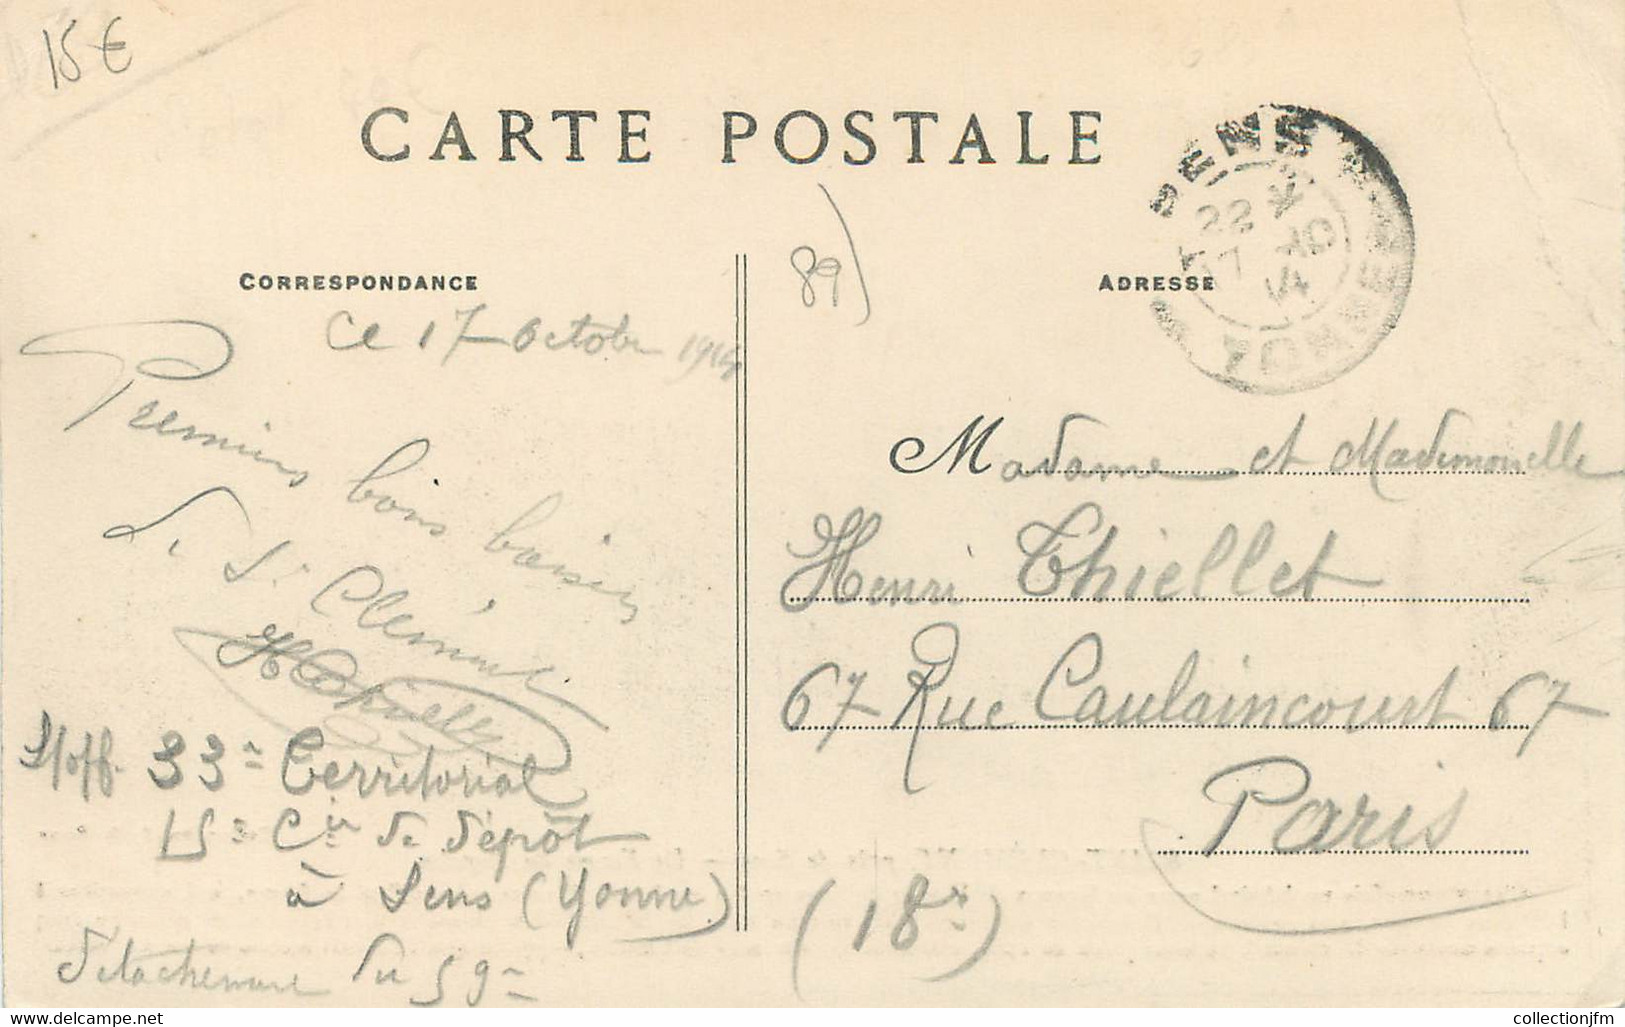 15€
CARTE POSTALE
SENS
22 *
17 - 10
14
YONNE
89)
CORRESPONDANCE
ADRESSE
Ce 17 octobre 1914
Premiers bons baisers
de St Clément
S/off. 33e Territorial
15e Cie de dépôt
à Sens (Yonne)
détachement du 59e
Madame et Mademoiselle
Henri Thiellet
67 Rue Caulaincourt 67
Paris
(18e)
www.delcampe.net
collectionjfm